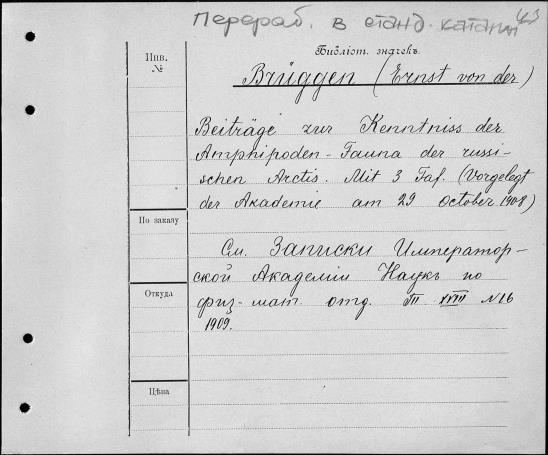 Перераб. в станд. каталог 43
Библіот. значекъ.
Инв. №
Brüggen (Ernst von der)
Beiträge zur Kenntniss der
Amphipoden-Fauna der russi-
schen Arctis. Mit 3 Taf. (Vorgelegt
der Akademie am 29 October 1908)
По заказу
См. Записки Император-
ской Академіи Наукъ по
физ-мат. отд. Т. XVIII N 16
Откуда
1909.
Цѣна